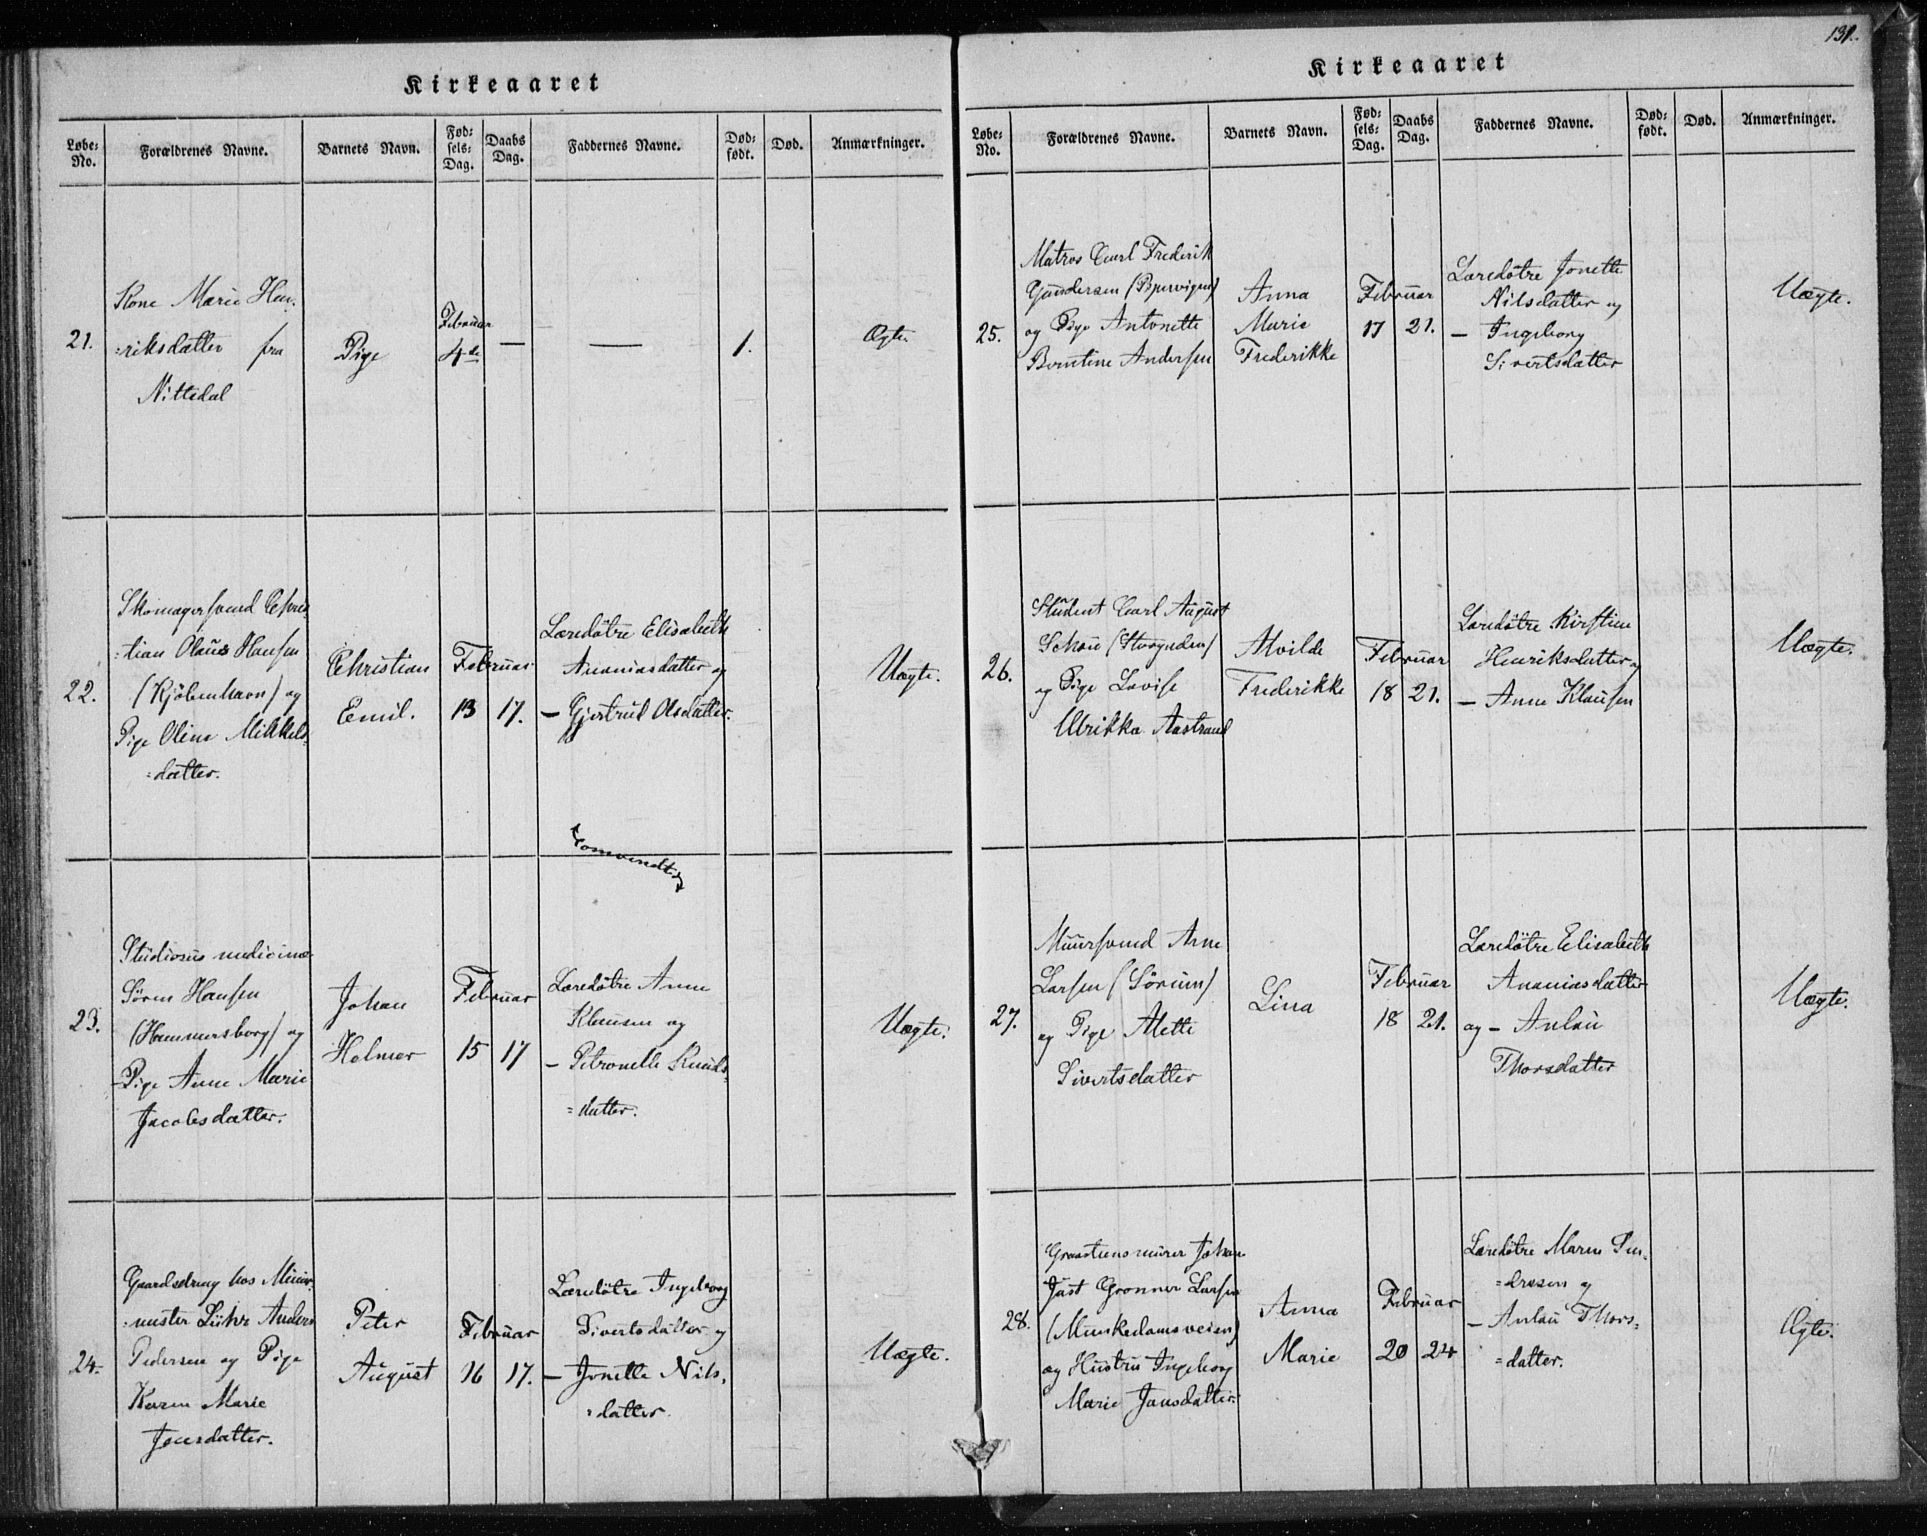 Kirkeaaret
Løbe-No. Forældrenes Navne. Barnets Navn. Fød-sels-Dag. Daabs Dag. Faddernes Navne. Død-født. Død. Anmærkninger.
21.
Kone Marie Hen-
=riksdatter fra
Nittedal
Pige
Februar
4de
—
—
1.
Ægte.
22.
Skomagersvend Chris
=tian Olaus Hansen
(Kjöbenhavn) og
Pige Oline Mikkels-
=datter.
Christian
Emil.
Februar
13 17.
Læredötre Elisabeth
Ananiasdatter og
— Gjertrud Olsdatter.
Uægte.
(omvendt)
23.
Studiosus medicinæ
Sören Hansen
(Hammersborg) og
Pige Anne Marie
Jacobsdatter.
Johan
Helmer
Februar
15 17
Læredötre Anne
Klausen og
— Petronelle Knuds-
=datter.
Uægte.
24.
Gaardsdreng hos Muur-
=mester Lühr Anders
Pedersen og Pige
Karen Marie
Jensdatter.
Peter
August
Februar
16 17.
Læredötre Ingeborg
Sivertsdatter og
— Jonette Nils-
=datter.
Uægte.
131.
Kirkeaaret
Løbe-No. Forældrenes Navne. Barnets Navn. Fød-sels-Dag. Daabs Dag. Faddernes Navne. Død-født. Død. Anmærkninger.
25.
Matros Carl Frederik
Gundersen (Bjervigen)
og Pige Antonette
Berntine Andersen
Anna
Marie
Frederikke
Februar
17 21.
Læredötre Jonette
Nilsdatter og
— Ingeborg
Sivertsdatter
Uægte.
26.
Student Carl August
Schou
og Pige Lovise
Ulrikka Aastrand
Alvilde
Frederikke
Februar
18 21.
Læredötre Kirstine
Henriksdatter og
— Anne Klausen
Uægte.
27.
Muursvend Arne
Larsen (Sörum)
og Pige Alette
Sivertsdatter
Lina
Februar
18 21.
Læredötre Elisabeth
Ananiasdatter
og — Anlau
Thorsdatter
Uægte.
28.
Graasteensmurer Johan
Just Gronner Larsen
(Munkedamsveien)
og Hustru Ingeborg
Marie Jansdatter.
Anna
Marie
Februar
20 24
Læredötre Maren
=dresen og
— Anlau Thors=
=datter.
Ægte.